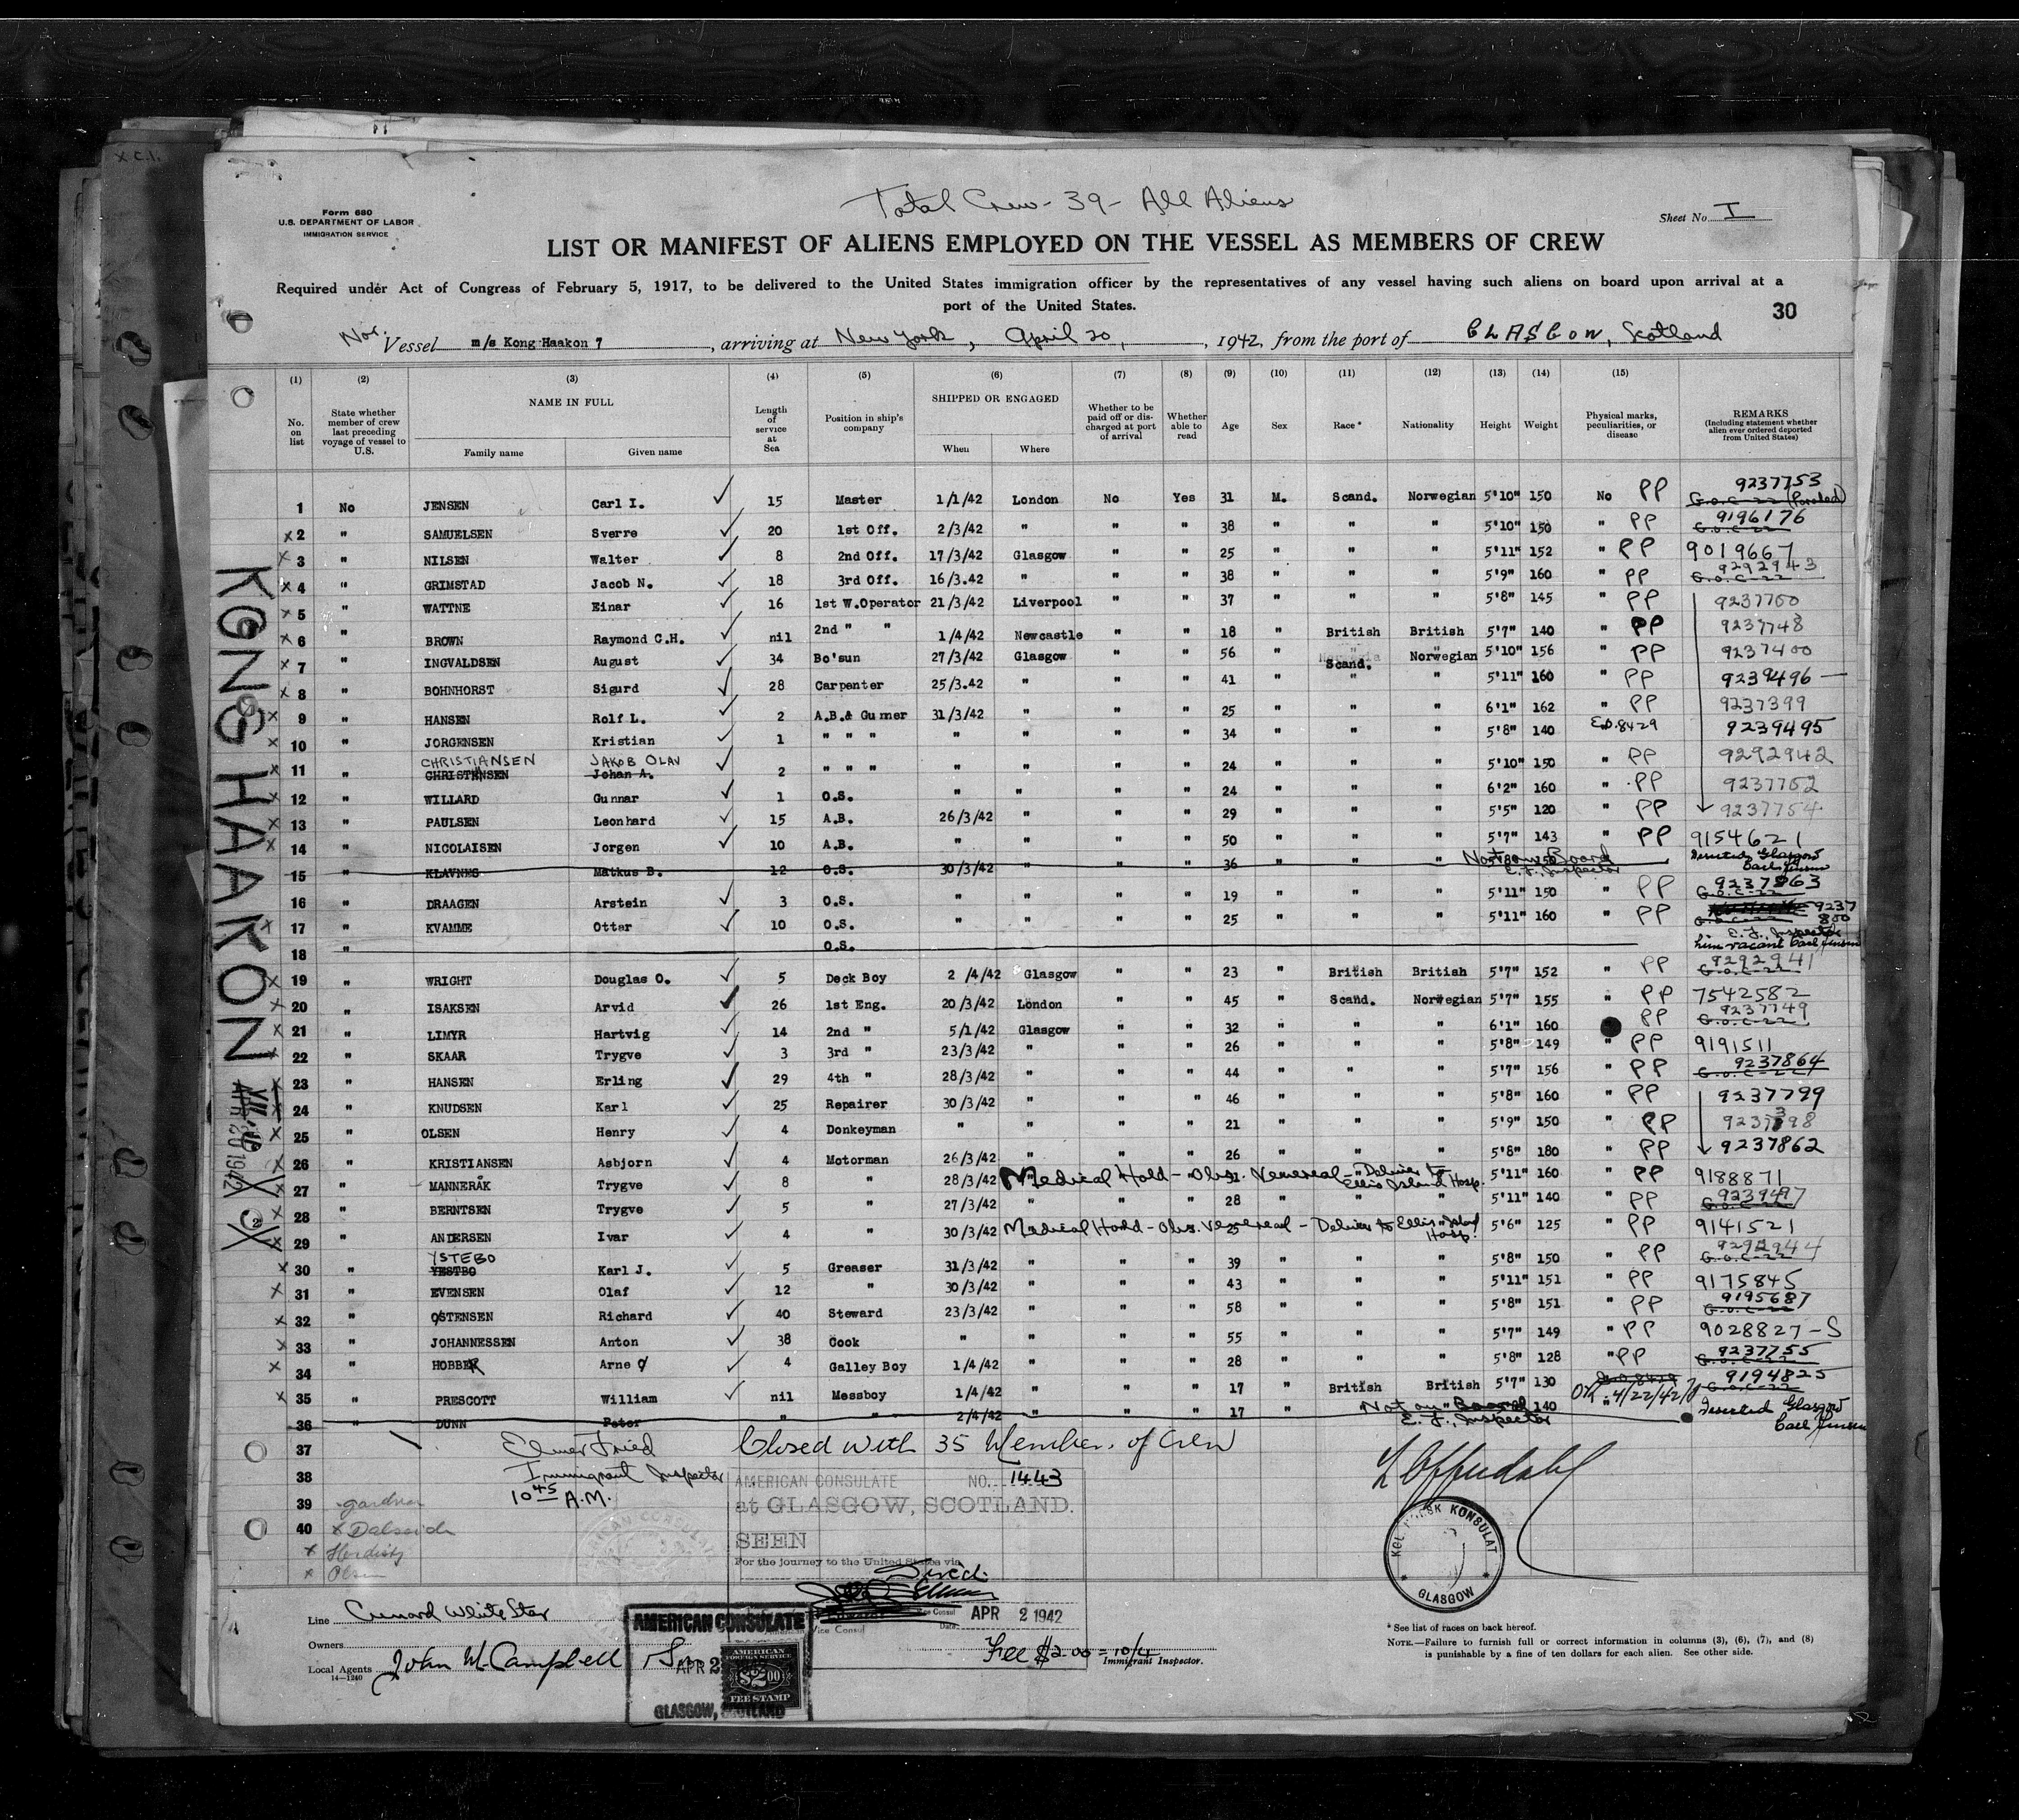 Total Crew - 39 - All Aliens
Form 680
U.S. DEPARTMENT OF LABOR
IMMIGRATION SERVICE
Sheet No. I
LIST OR MANIFEST OF ALIENS EMPLOYED ON THE VESSEL AS MEMBERS OF CREW
Required under Act of Congress of February 5, 1917, to be delivered to the United States immigration officer by the representatives of any vessel having such aliens on board upon arrival at a
port of the United States.
30
Nor. Vessel m/s Kong Haakon 7, arriving at New York, April 20, 1942, from the port of GLASGOW, Scotland
(1) (2) (3) (4) (5) (6) (7) (8) (9) (10) (11) (12) (13) (14) (15)
No. on list
State whether member of crew last preceding voyage of vessel to U.S.
NAME IN FULL
Family name
Given name
Length of service at Sea
Position in ship's company
SHIPPED OR ENGAGED
When
Where
Whether to be paid off or discharged at port of arrival
Whether able to read
Age
Sex
Race *
Nationality
Height
Weight
Physical marks, peculiarities, or disease
REMARKS
(Including statement whether alien ever ordered deported from United States)
1 No JENSEN Carl I. 15 Master 1/1/42 London No Yes 31 M. Scand. Norwegian 5'10" 150 No PP 9237753 G.o.C-22 (Paroled)
x 2 " SAMUELSEN Sverre 20 1st Off. 2/3/42 " " " 38 " " " 5'10" 150 " PP 9196176 G.o.C-22
x 3 " NILSEN Walter 8 2nd Off. 17/3/42 Glasgow " " 25 " " " 5'11" 152 " PP 9019667
x 4 " GRIMSTAD Jacob N. 18 3rd Off. 16/3.42 " " " 38 " " " 5'9" 160 " PP 9292943 G.o.C-22
x 5 " WATTNE Einar 16 1st W.Operator 21/3/42 Liverpool " " 37 " " " 5'8" 145 " PP 9237700
x 6 " BROWN Raymond C.H. nil 2nd " " 1/4/42 Newcastle " " 18 " British British 5'7" 140 " PP 9237748
x 7 " INGVALDSEN August 34 Bo'sun 27/3/42 Glasgow " " 56 " Scand. Norwegian 5'10" 156 " PP 9237400
x 8 " BOHNHORST Sigurd 28 Carpenter 25/3.42 " " " 41 " " " 5'11" 160 " PP 9239496
x 9 " HANSEN Rolf L. 2 A.B.& Gunner 31/3/42 " " " 25 " " " 6'1" 162 " PP 9237399
x 10 " JORGENSEN Kristian 1 " " " " " " " 34 " " " 5'8" 140 8429 9239495
CHRISTIANSEN JAKOB OLAV
x 11 " CHRISTENSEN Johan A. 2 " " " " " " " 24 " " " 5'10" 150 " PP 9292942
x 12 " WILLARD Gunnar 1 O.S. " " " " 24 " " " 6'2" 160 " PP 9237752
x 13 " PAULSEN Leonhard 15 A.B. 26/3/42 " " " 29 " " " 5'5" 120 " PP 9237754
x 14 " NICOLAISEN Jorgen 10 A.B. " " " " 50 " " " 5'7" 143 " PP 9154621
15 " KLAVNES Matkus B. 12 O.S. 30/3/42 " " " 36 " " " Not on Board E.F. Inspector Deserted Glasgow Carl Jensen
16 " DRAAGEN Arstein 3 O.S. " " " " 19 " " " 5'11" 150 " PP 9237863 G.o.C-22
x 17 " KVAMME Ottar 10 O.S. " " " " 25 " " " 5'11" 160 " PP 9237800 G.o.C-22
18 " O.S. E.F., Inspector Line vacant Carl Jensen
x 19 " WRIGHT Douglas O. 5 Deck Boy 2 /4/42 Glasgow " " 23 " British British 5'7" 152 " PP 9292941 G.o.C-22
x 20 " ISAKSEN Arvid 26 1st Eng. 20/3/42 London " " 45 " Scand. Norwegian 5'7" 155 " PP 7542582
x 21 " LIMYR Hartvig 14 2nd " 5/1/42 Glasgow " " 32 " " " 6'1" 160 PP 9237749 G.o.C-22
x 22 " SKAAR Trygve 3 3rd " 23/3/42 " " " 26 " " " 5'8" 149 " PP 9191511
x 23 " HANSEN Erling 29 4th " 28/3/42 " " " 44 " " " 5'7" 156 " PP 9237864 G.o.C-22
x 24 " KNUDSEN Karl 25 Repairer 30/3/42 " " " 46 " " " 5'8" 160 " PP 9237799
x 25 " OLSEN Henry 4 Donkeyman " " " " 21 " " " 5'9" 150 " PP 9237398
x 26 " KRISTIANSEN Asbjorn 4 Motorman 26/3/42 " " " 26 " " " 5'8" 180 " PP 9237862
x 27 " MANNERÅK Trygve 8 " 28/3/42 Medical Hold - Obs. Venereal - Deliver to Ellis Island Hosp. 5'11" 160 " PP 9188871
x 28 " BERNTSEN Trygve 5 " 27/3/42 " " " 28 " " " 5'11" 140 " PP 9239497 G.o.C-22
x 29 " ANDERSEN Ivar 4 " 30/3/42 Medical Hold - Obs. Venereal - Deliver to Ellis Island Hosp. 25 5'6" 125 " PP 9141521
YSTEBO
x 30 " YESTBO Karl J. 5 Greaser 31/3/42 " " " 39 " " " 5'8" 150 " PP 9292944 G.o.C-22
x 31 " EVENSEN Olaf 12 " 30/3/42 " " " 43 " " " 5'11" 151 " PP 9175845
x 32 " OSTENSEN Richard 40 Steward 23/3/42 " " " 58 " " " 5'8" 151 " PP 9195687 G.o.C-22
x 33 " JOHANNESSEN Anton 38 Cook " " " " 55 " " " 5'7" 149 " PP 9028827-S
x 34 " HOBBER Arne O 4 Galley Boy 1/4/42 " " " 28 " " " 5'8" 128 " PP 9237755 G.o.C-22
x 35 " PRESCOTT William nil Messboy 1/4/42 " " " 17 " British British 5'7" 130 OK 4/22/42 9194825 G.o.C-22
36 " DUNN Peter " " 2/4/42 " " " 17 " Not on Board E.F., Inspector 140 Deserted Glasgow Carl Jensen
37 Elmer Fried Closed with 35 Members of Crew
38 Immigrant Inspector
39 gardner 10 45 A.M.
40 x
x
x Olsen
KONG HAAKON VII
APR 20 1942
AMERICAN CONSULATE NO. 1443
at GLASGOW, SCOTLAND.
SEEN
For the journey to the United States via
Direct
Vice Consul
Date: APR 2 1942
KGL NORSK KONSULAT
GLASGOW
Line Cunard White Star
Owners
Local Agents John M. Campbell
14-1240
AMERICAN CONSULATE
APR 2
AMERICAN
FOREIGN SERVICE
$2.00
FEE STAMP
GLASGOW, SCOTLAND
Fee $2.00 = 10/4
Immigrant Inspector.
* See list of races on back hereof.
NOTE.—Failure to furnish full or correct information in columns (3), (6), (7), and (8)
is punishable by a fine of ten dollars for each alien. See other side.